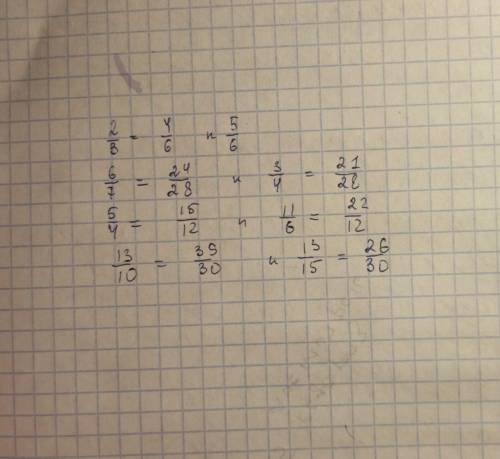 2/3 = 4/6 и 5/6
6/7 = 24/28 и 3/4 = 21/28
5/4 = 15/12 и 11/6 = 22/12
13/10 = 39/30 и 13/15 = 26/30